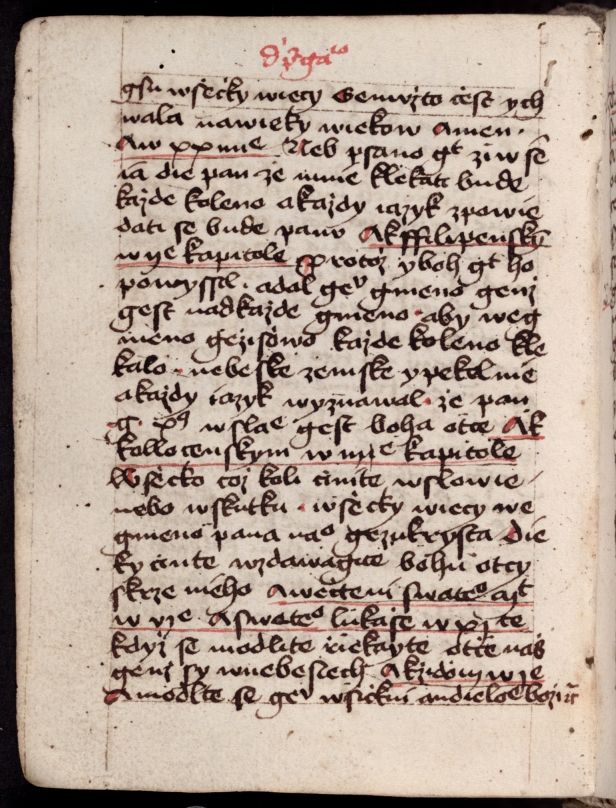 gsu wssecky wiecy Genuzto cest y ch
wala nawieky wiekow amen ·
Aw xxiiiie Neb psano gt ziw se
ia die pan ze mnie klekati bude
kazde koleno akazdy iazyk zpowie
dati se bude panu Ak ffilipenskym
w iie kapitole protoz y boh gt ho
powyssil · adal geu gmeno genz
gest nadkazde gmeno · aby weg
meno gezissowo kazde koleno kle
kalo · nebeske zemske y pekelnie
akazdy iazyk wyznawal · ze pan
w slae gest boha otce Ak
kollocenskym w iiie kapitole
Wssecko coz koli cinite wslowie ·
nebo wskutku · wssecky wiecy we
gmeno pana nao gezukrysta die
ky cinte wzdawagice bohu otcy
skrze nieho Awecteni swateo
w vie Aswateo lukasse w xite
kdyz se modlite riekayte otce nas
genz sy wnebesiech Akzidom w ie
Amodlte se geu wsickni andieloe bozi